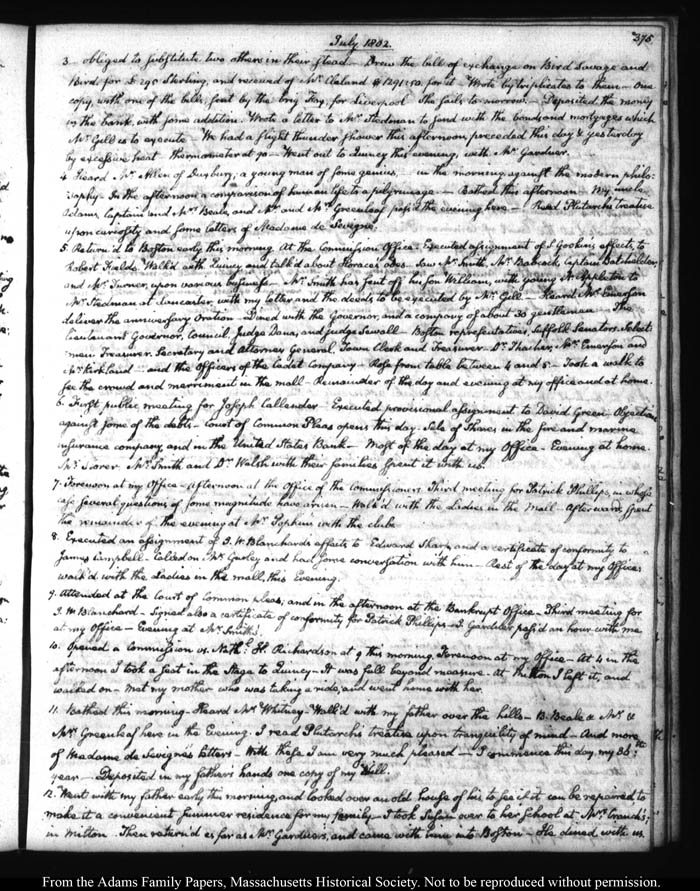 July 1802.
375
3. obliged to substitute two others in their stead — Drew the bill of exchange on Bird Savage and
Bird for £ 290 Sterling, and received of Mr. Cleland $ 1291:50. for it. Wrote by triplicates to them — One
copy, with one of the bills, sent by the brig Fox, for Liverpool. She sails to-morrow. — Deposited the money
in the bank, with some addition. Wrote a letter to Mr. Stedman to send with the bonds and mortgages which
Mr. Gill is to execute. We had a slight thunder shower this afternoon, preceded this day & yesterday
by excessive heat thermometer at 90 — Went out to Quincy this evening, with Mr. Gardner.
4. Heard Mr. Allen of Duxbury; a young man of some genius, — in the morning against the modern philo-
sophy — In the afternoon a comparison of human life to a pilgrimage — Bathed this afternoon — My uncle
Adams, Captain and Mrs. Beale, and Mr. and Mrs. Greenleaf pass'd the evening here — Read Plutarch's treatise
upon curiosity, and some letters of Madame de Sevigné.
5. Return'd to Boston early this morning. At the Commission Office. Executed assignment of S. Gookin's effects, to
Robert Fields. Walk'd with Quincy and talk'd about Horace's Odes. Saw Mr. Smith, Mr. Babcock, Captain Batchelder,
and Mr. Turner, upon various business — Mr. Smith has sent off his son William, with young Appleton to
Mr. Stedman at Lancaster, with my letter and the deeds to be executed by Mr. Gill — Heard Mr. Emerson
deliver the anniversary Oration — Dined with the Governor, and a company of about 30 gentlemen — The
Lieutenant Governor, Council, Judge Dana, and Judge Sewall — Boston representatives, Suffolk Senators, Select-
men Treasurer, Secretary and Attorney General, Town Clerk and Treasurer — Dr. Thacher, Mr. Emerson and
Mr. Kirkland — and the Officers of the Cadet Company — Rose from table between 4 and 5 — Took a walk to
see the crowd and merriment in the mall — Remainder of the day and evening at my office and at home.
6. First public meeting for Joseph Callender — Executed provisional assignment to David Green — Objections
against some of the debts — Court of Common Pleas opens this day. Sale of Shares in the fire and marine
insurance company, and in the United States Bank — Most of the day at my Office — Evening at home.
Mr. Storer Mr. Smith and Dr. Welsh with their families spent it with us.
7. Forenoon at my Office — afternoon at the Office of the Commissioners. Third meeting for Patrick Phillips, in whose
case several questions of some magnitude have arisen — Walk'd with the Ladies in the Mall — Afterwards spent
the remainder of the evening at Mr. Popkin's with the club.
8. Executed an assignment of J. W. Blanchard's effects to Edward and a certificate of conformity to
James Campbell. Called on Mr. and had some conversation with him — Rest of the day at my Office;
walk'd with the Ladies in the mall this Evening.
9. Attended at the Court of Common pleas, and in the afternoon at the Bankrupt Office — Third meeting for
J. W. Blanchard — Signed also a certificate of conformity for Patrick Phillips — J. Gardner pass'd an hour with me
at my Office — Evening at Mr. Smith's.
10. Opened a Commission vs. Nathl: H. Richardson at 9 this morning. Forenoon at my Office — At 4 in the
afternoon I took a seat in the Stage to Quincy — It was full beyond measure — At Milton I left it, and
walked on — Met my mother who was taking a ride, and went home with her.
11. Bathed this morning — Heard Mr. Whitney — Walk'd with my father over the hills — B. Beale & Mr. &
Mrs. Greenleaf here in the Evening. I read Plutarch's treatise upon tranquility of mind — And more
of Madame de Sevigne's letters — With these I am very much pleased — I commence this day, my 36th:
year — Deposited in my father's hands one copy of my Will.
12. Went with my father early this morning, and looked over an old house of his to see if it can be repaired to
make it a convenient summer residence for my family — I took Susan over to her School at Mrs. Cranch's;
in Milton. Then return'd as far as Mr. Gardner's, and came with him into Boston — He dined with us.
From the Adams Family Papers, Massachusetts Historical Society. Not to be reproduced without permission.